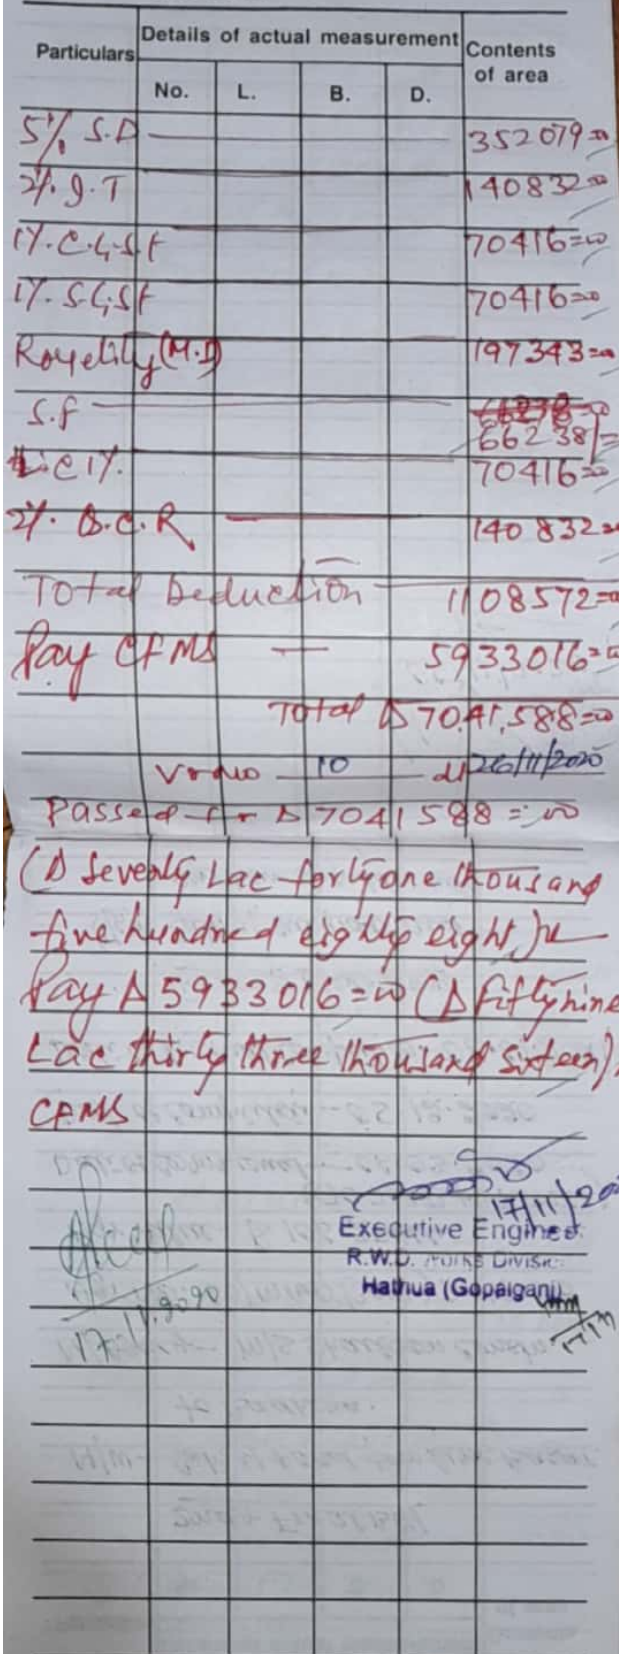 Particulars Details of actual measurement Contents of area
No. L. B. D.
5% S.D 352079=00
2%. I.T 140832=00
1%. C.G.S.T 70416=00
1%. S.G.ST 70416=00
Royelity (M.I) 197343=00
S.F 66238/=
L.C 1%. 70416=00
2%. B.C.R 140832=00
Total Deduction 1108572=00
Pay CFMS — 5933016=00
Total ₹ 70,41,588=00
Vr No 10 dt 26/11/2020
Passed for ₹ 7041588=00
(₹ Seventy Lac forty one thousand
five hundred eighty eight)
Pay ₹ 5933016=00 (₹ fifty nine
Lac thirty three thousand sixteen)
CFMS
17/11/20
Executive Engineer
R.W.D. Works Division
Hathua (Gopalganj)
17/11/2020